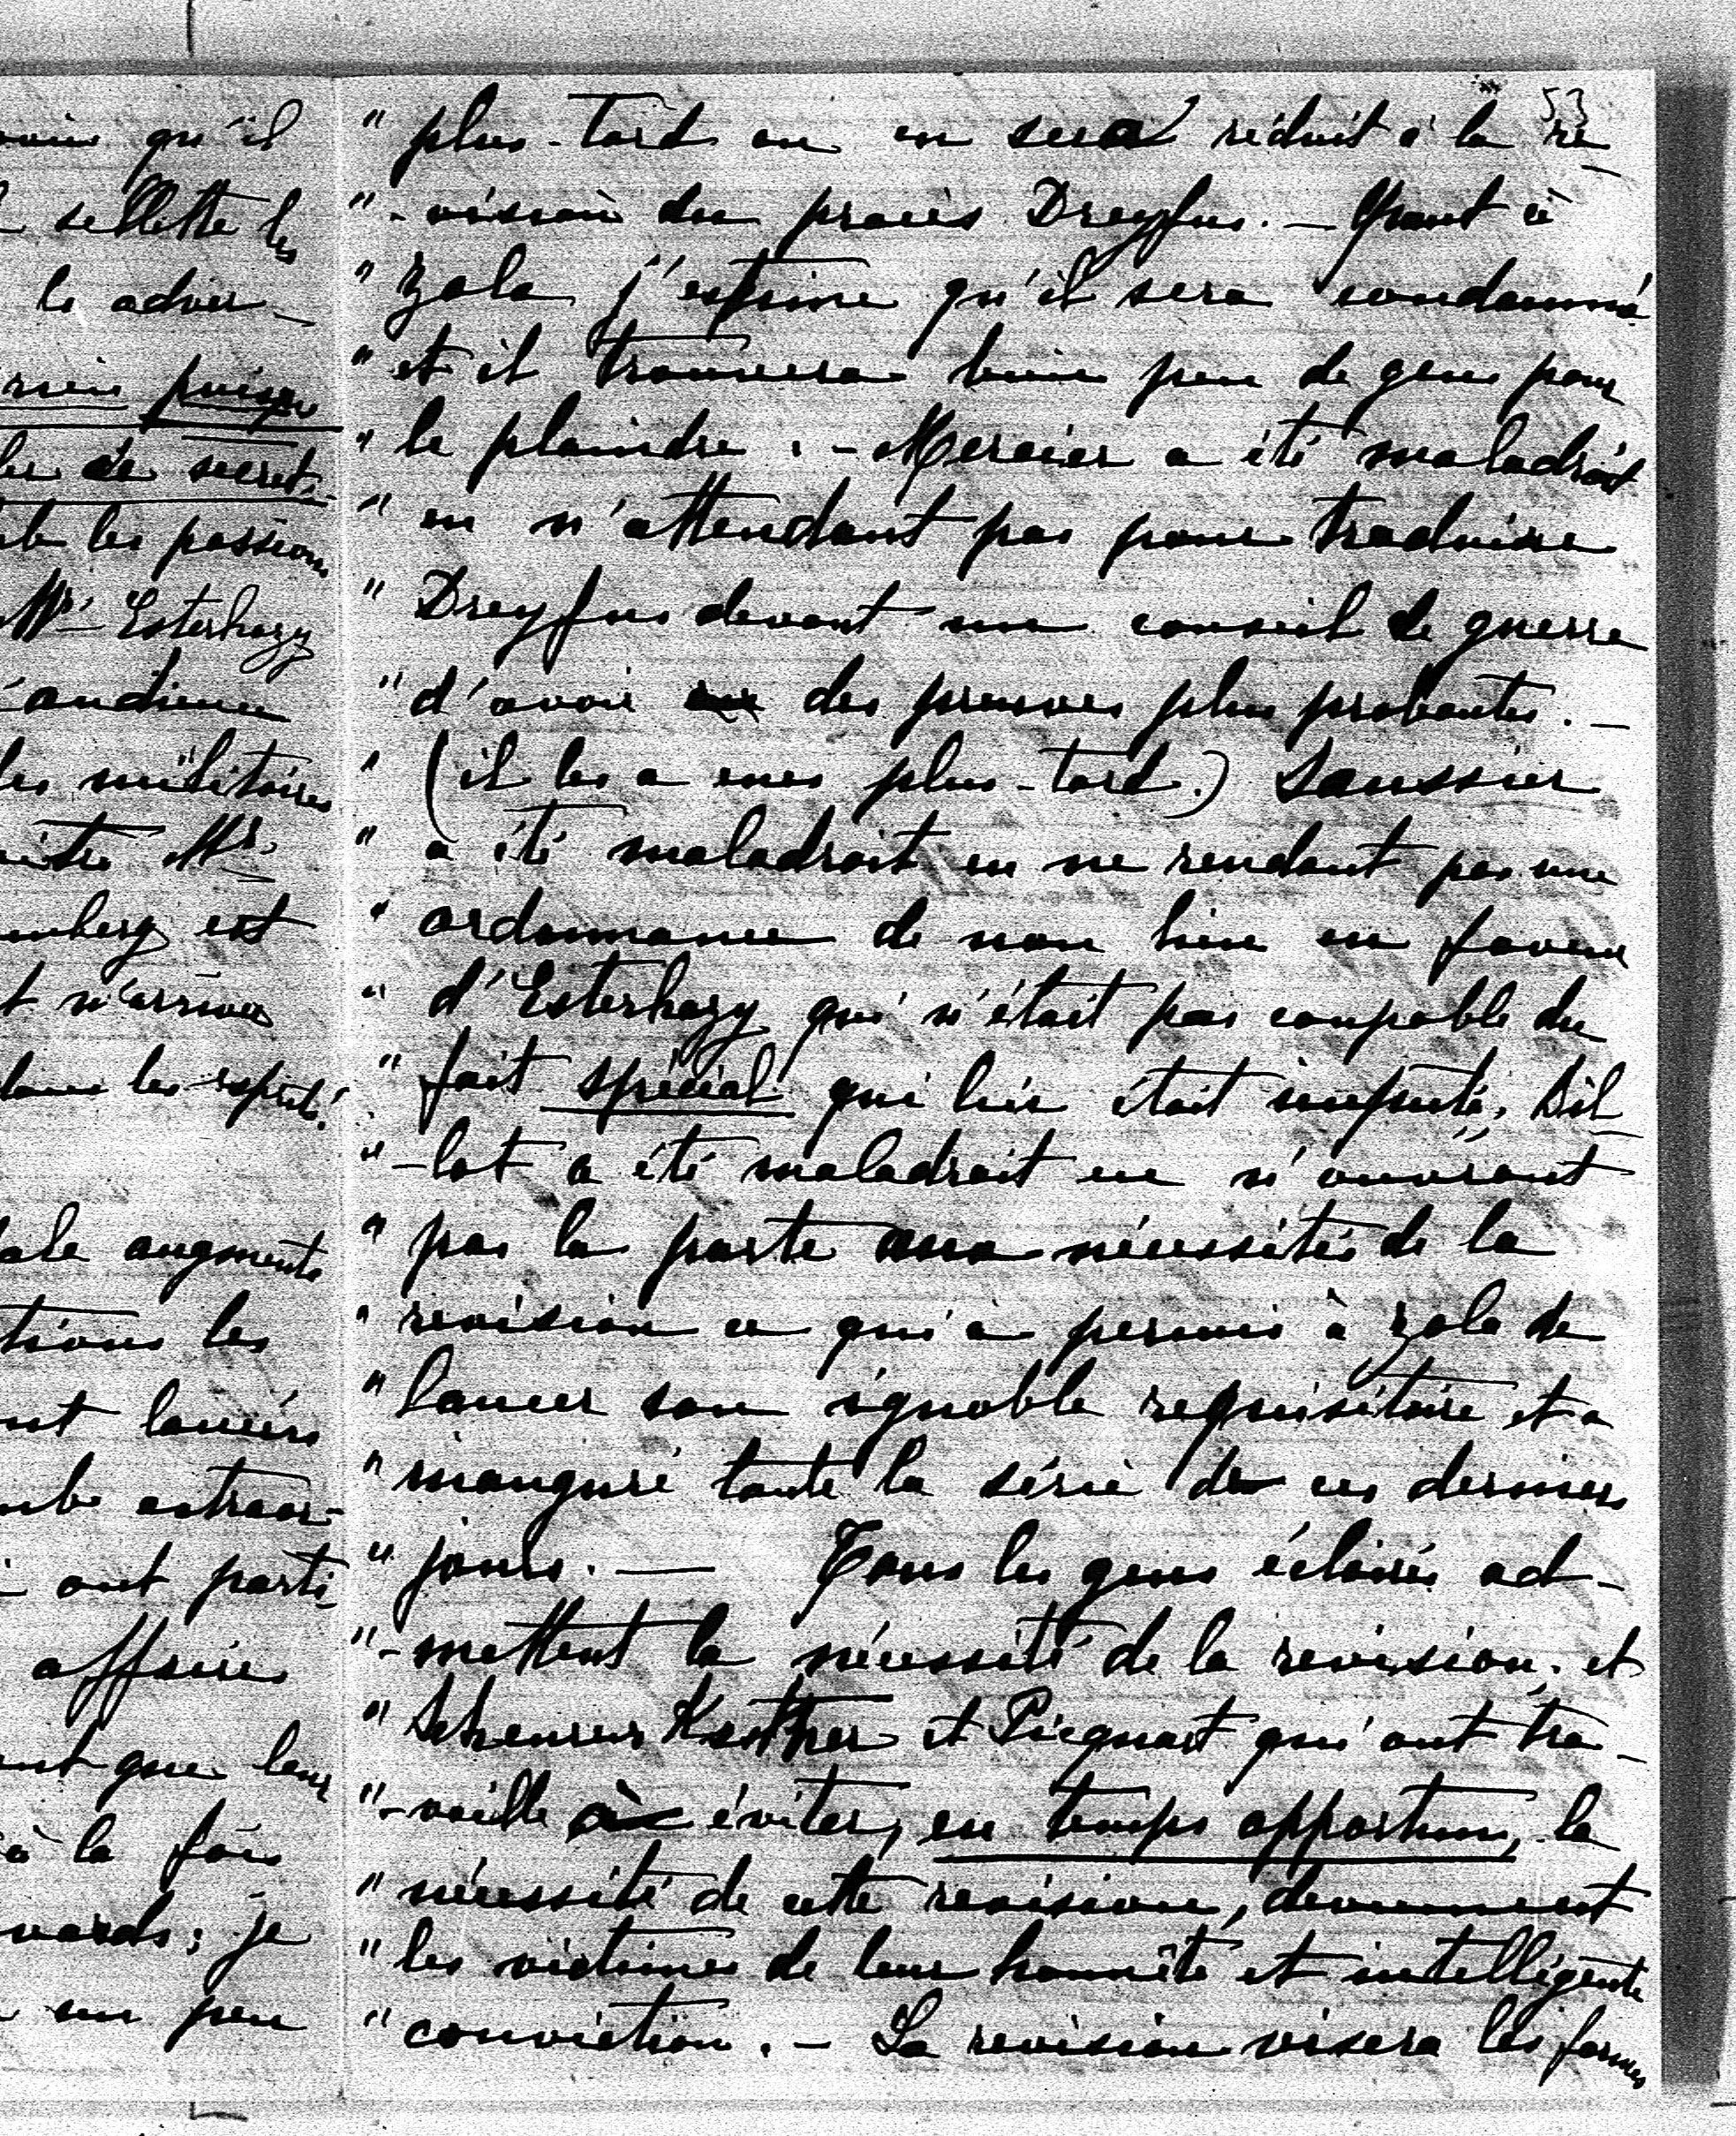 53
" plus-tard on en sera réduit à la re
" -vision du procès Dreyfus. — Quant à
" Zola j'estime qu'il sera condamné
" et il trouvera bien peu de gens pour
" le plaindre. - Mercier a été maladroit
" en n'attendant pas pour traduire
" Dreyfus devant un conseil de guerre
" d'avoir des preuves plus probantes. —
" (il les a eues plus-tard.) Saussier
" a été maladroit en ne rendant pas une
" ordonnance de non lieu en faveur
" d'Esterhazy qui n'était pas coupable du
" fait spécial qui lui était imputé, Bil
" -lot a été maladroit en n'ouvrant
" pas la porte aux nécessités de la
" revision ce qui a permis à Zola de
" lancer son ignoble requisitoire et a
" inauguré toute la série de ces derniers
" jours. — Tous les gens éclairés ad-
" -mettent la nécessité de la revision, et
" Scheurer Kestner et Picquart qui ont tra-
" -vaillé à éviter, en temps opportun, la
" nécessité de cette revision, deviennent
" les victimes de leur honnête et intelligente
" conviction. - La revision visera les formes
qu'il
sellette les
le adver-
puisqu
de secret.
les passions
Mr Esterhazy
audience
les militaires
Mr
est
n'arrive
dans les esprits!
augmente
les
lancées
extraor-
ont parti
affaire
que leur
à la fois
je
un peu